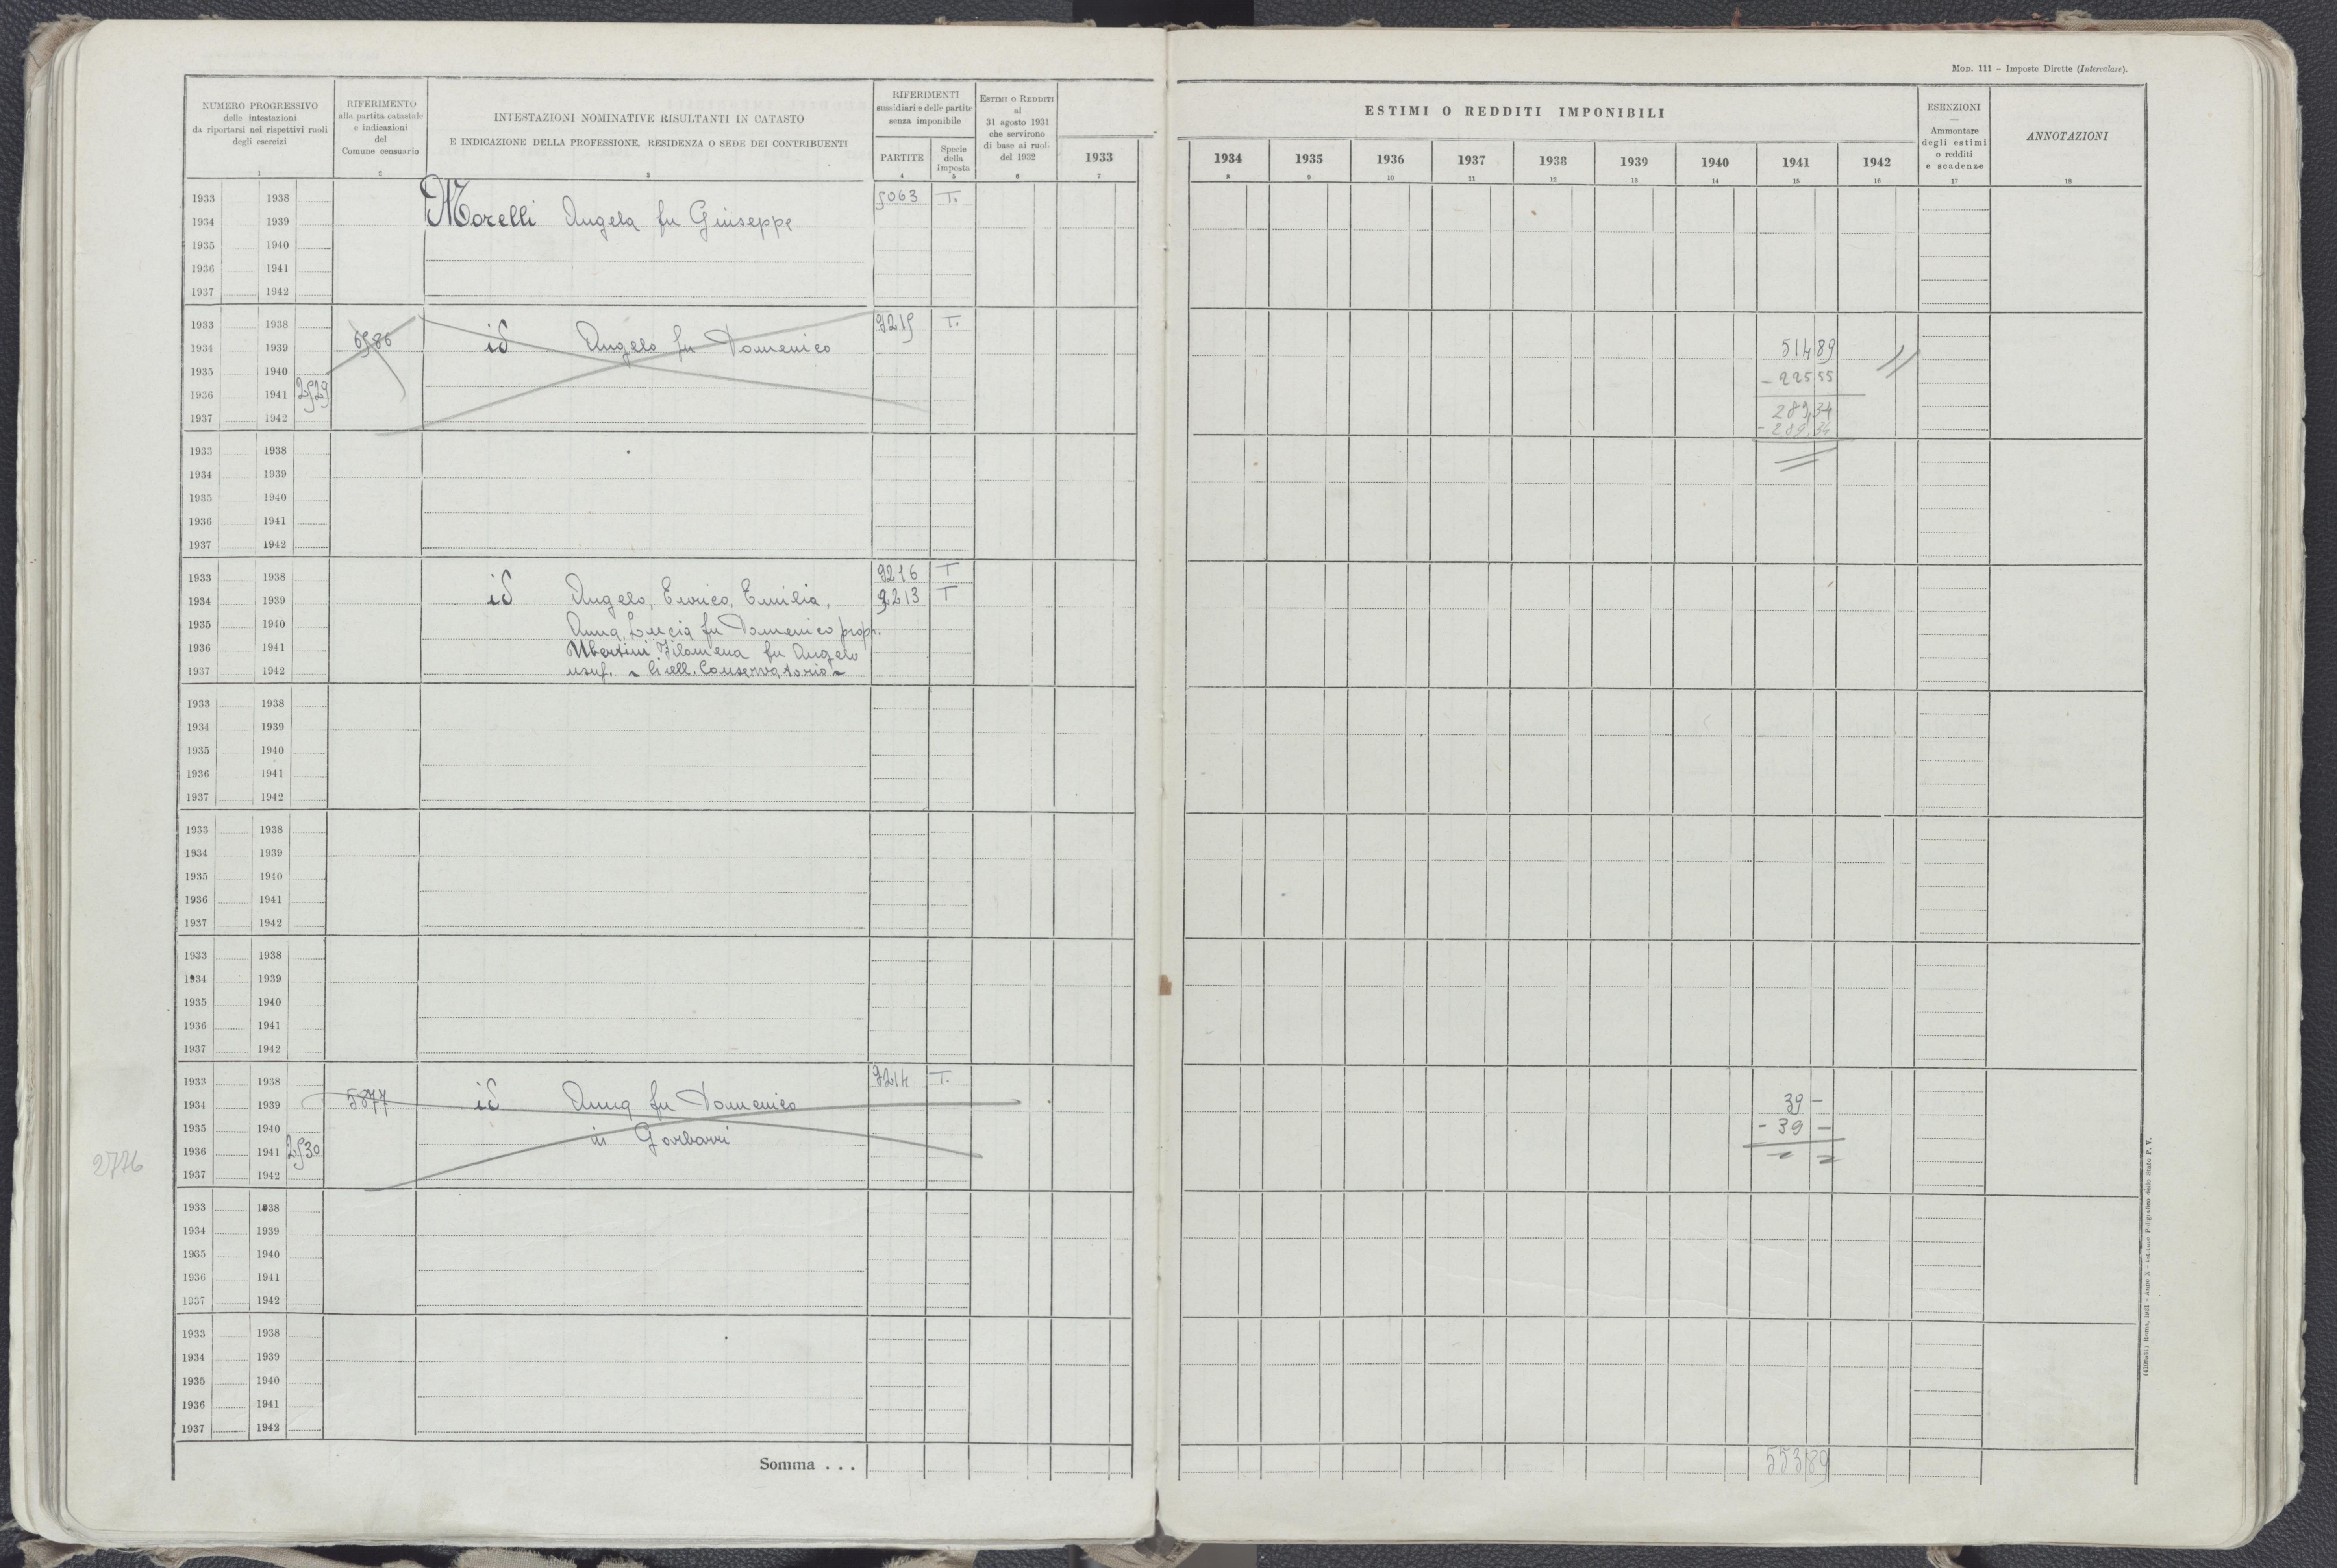 MOD. 111 – Imposte Dirette (Intercalare).
NUMERO PROGRESSIVO
delle intestazioni
da riportarsi nei rispettivi ruoli
degli esercizi
1
RIFERIMENTO
alla partita catastale
e indicazioni
del
Comune censuario
2
INTESTAZIONI NOMINATIVE RISULTANTI IN CATASTO
E INDICAZIONE DELLA PROFESSIONE, RESIDENZA O SEDE DEI CONTRIBUENTI
3
RIFERIMENTI
sussidiari e delle partite
senza imponibile
PARTITE
4
Specie
della
Imposta
5
ESTIMI O REDDITI
al
31 agosto 1931
che servirono
di base ai ruoli
del 1932
6
1933
7
ESTIMI O REDDITI IMPONIBILI
1934 1935 1936 1937 1938 1939 1940 1941 1942
8 9 10 11 12 13 14 15 16
ESENZIONI
—
Ammontare
degli estimi
o redditi
e scadenze
17
ANNOTAZIONI
18
1933 1938 5063 T.
1934 1939 Morelli Angela fu Giuseppe
1935 1940
1936 1941
1937 1942
1933 1938 9215 T.
1934 1939 6586 id Angelo fu Domenico 514 89
1935 1940 - 225 55
1936 1941 2529
1937 1942 289,34
- 289,34
1933 1938
1934 1939
1935 1940
1936 1941
1937 1942
1933 1938 9216 T
1934 1939 id Angelo, Enrico, Emilia, 9213 T
1935 1940 Anna, Lucia fu Domenico propr.
1936 1941 Ubertini Filomena fu Angelo
1937 1942 usuf. - livell. Conservatorio -
1933 1938
1934 1939
1935 1940
1936 1941
1937 1942
1933 1938
1934 1939
1935 1940
1936 1941
1937 1942
1933 1938
1934 1939
1935 1940
1936 1941
1937 1942
1933 1938 9214 T.
1934 1939 5877 id Anna fu Domenico 39 –
1935 1940 in Gorbarri - 39 –
1936 1941 2530
2776
1937 1942
1933 1938
1934 1939
1935 1940
1936 1941
1937 1942
1933 1938
1934 1939
1935 1940
1936 1941
1937 1942
Somma . . . 553 89